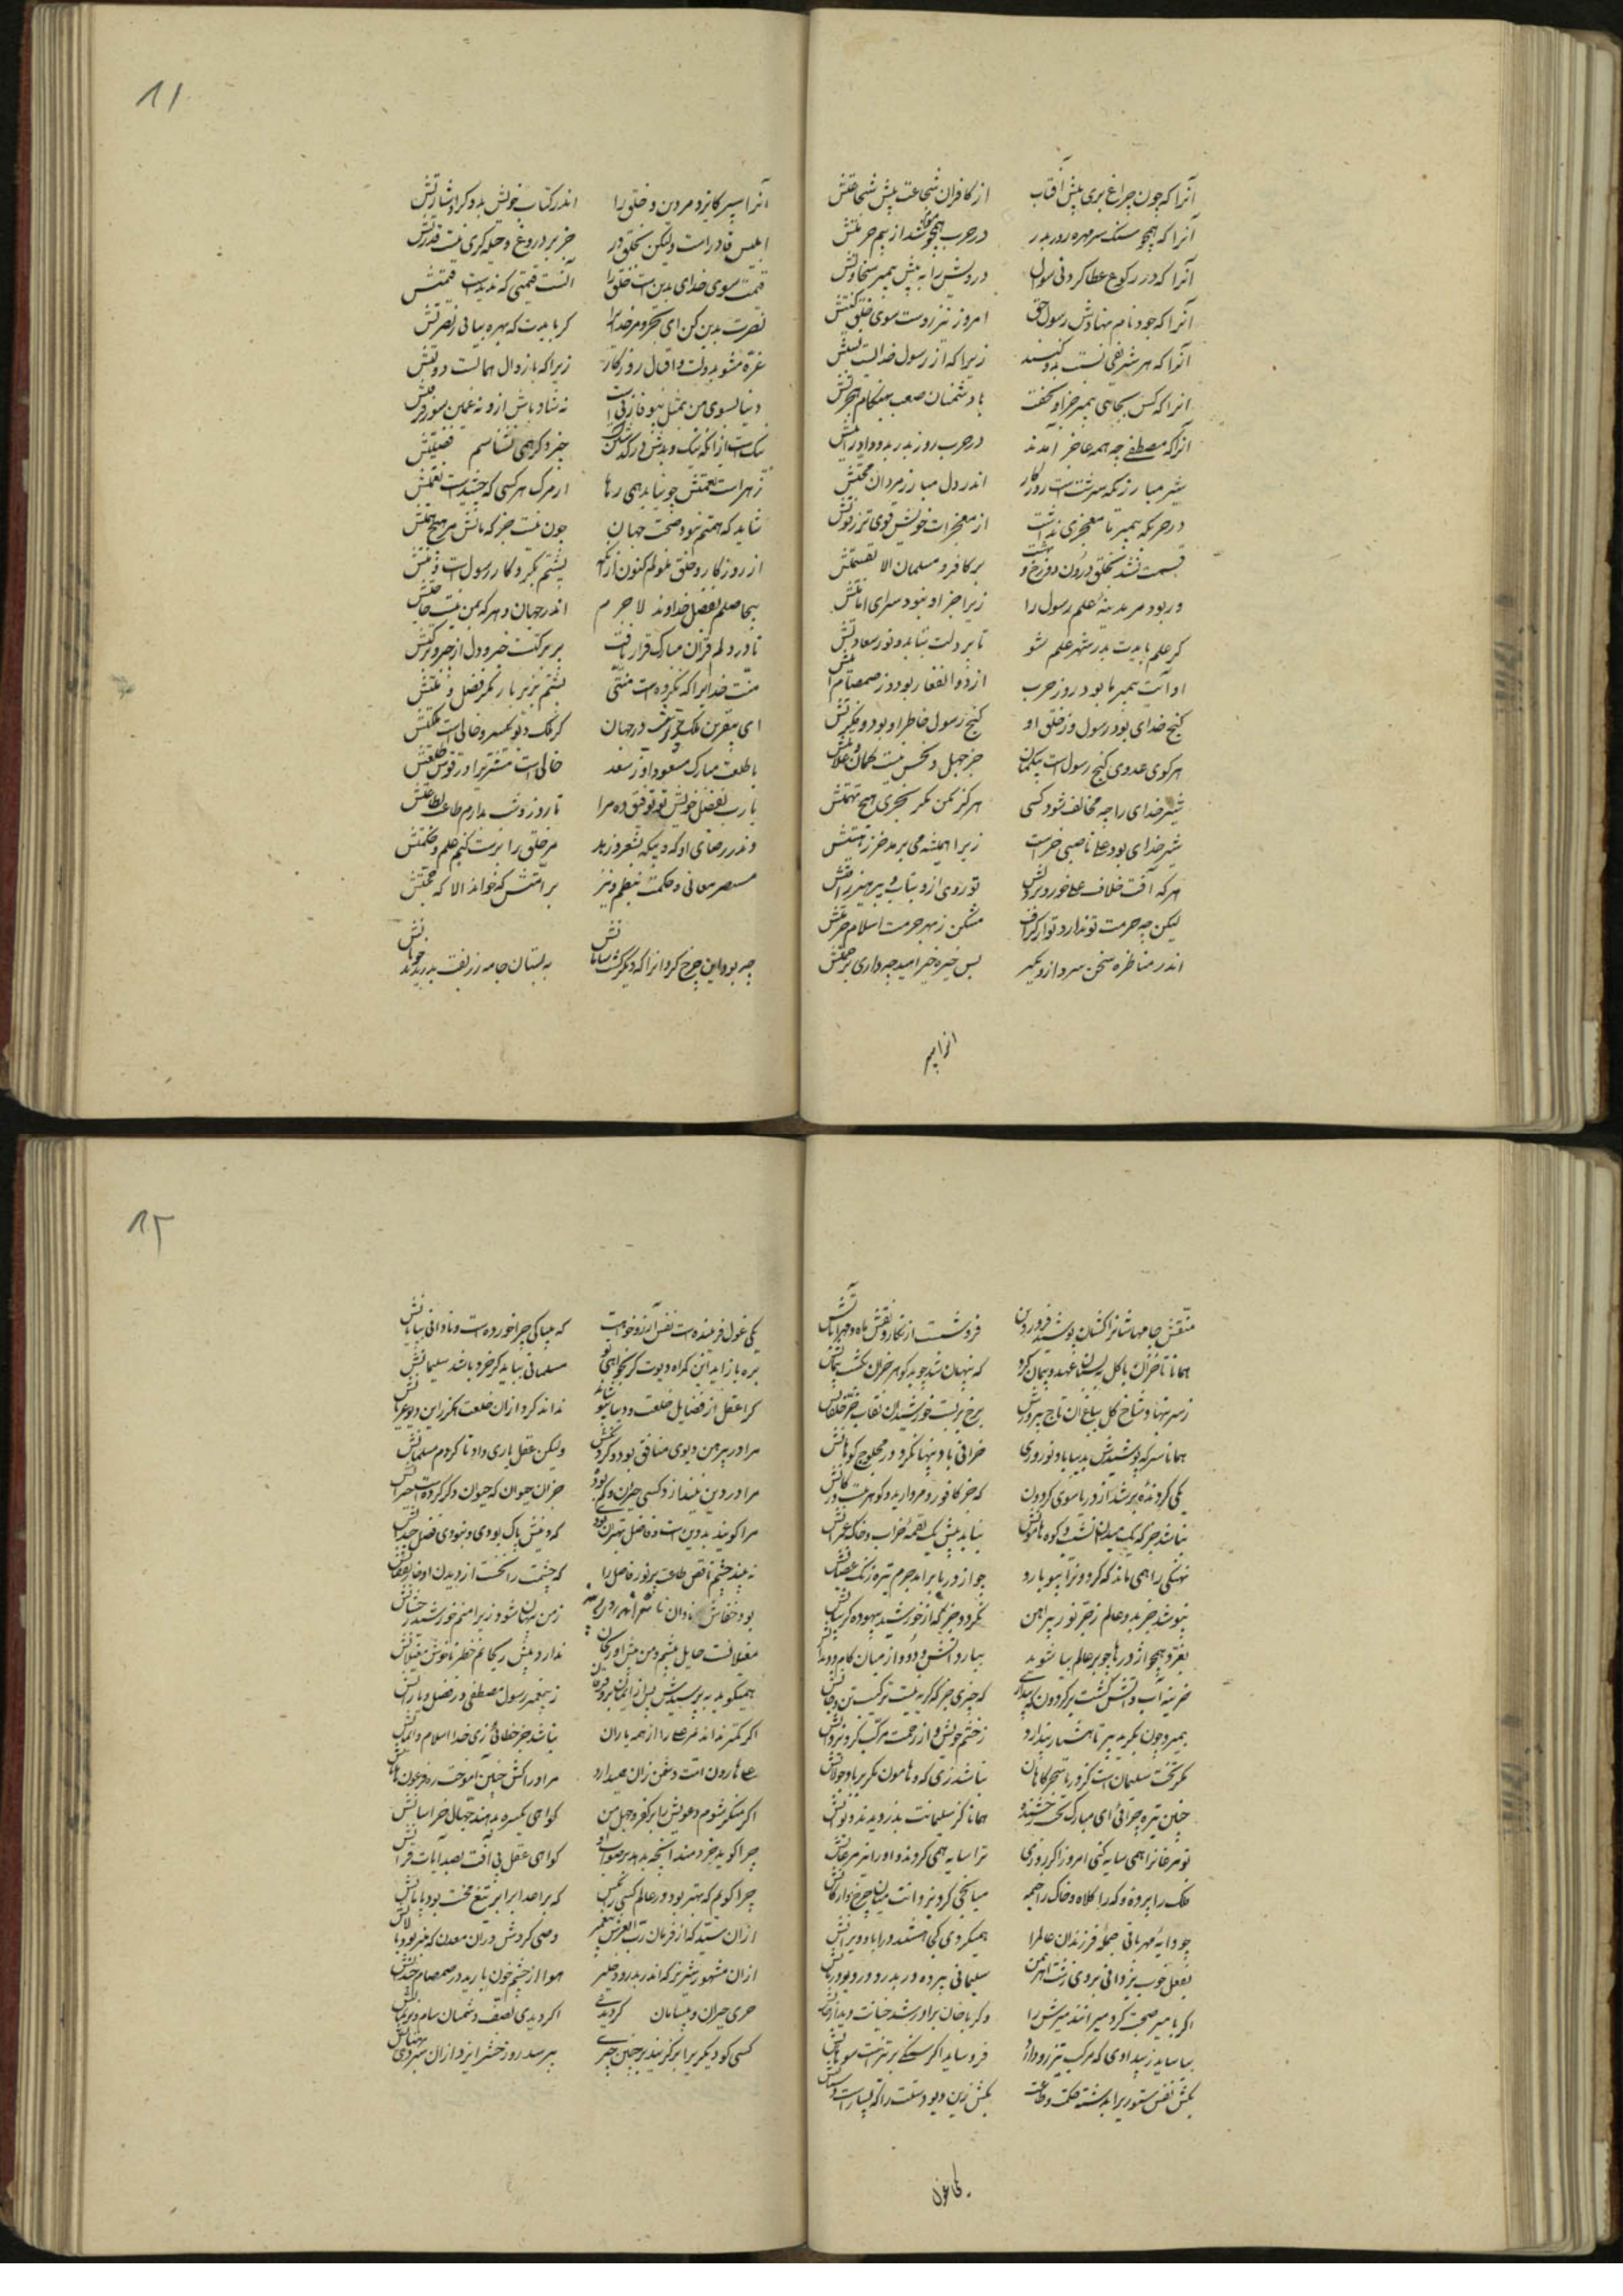 آنرا که چون چراغ بدی پیش آفتاب از کافران شجاعت پیش شجاعتش
آنرا که همچو سنک سرمره روز بدر در حرب همچو موم شد از بیم ضربتش
آنرا که در رکوع عطا کرد بی سوال درویش را به پیش پیمبر سخاوتش
آنرا که چود نام نهادش رسول حق امروز نیز اوست سوی خلق کنیتش
آنرا که هر شریفی نسبت بدو کنند زیرا که از رسول خداست نسبتش
آنرا که کس بجای پیمبر جز او نخفت با دشمنان صعب بهنکام هجرتش
آنرا که مصطفی چو همه عاجز آمدند در حرب روز بدر بدو داد رایتش
شیر مبارزی که سرشتست روزکار اندر دل مبارز مردان محبتش
در حربکه پیمبر ما معجزی نداشت از معجزات خویش قوی تر ز قوتش
قسمت نشد بخلق درون دوزخ و بهشت بر کافر و مسلمان الا بقسمتش
در بود مر مدینهٔ علم رسول را زیرا جز او نبود سزای امانتش
کر علم بایدت بدر شهر علم شو تا بر دلت بتابد نور سعادتش
او آیت پیمبر ما بود روز حرب از ذوالفقار بود و ز صمصام آیتش
کنج خدای بود رسول و ز خلق او کنج رسول خاطر او بود و فکرتش
هر کو عدوی کنج رسولست بیکمان جز جهل و نحس نیست نشان علامتش
شیر خدای را چو مخالف شود کسی هرکز مکن مکر بخری هیچ تهمتش
شیر خدای بود علی ناصبی خرست زیرا همیشه می برمد خر ز هیبتش
هر که آفت خلاف علی خورد بر دلش تو روی ازو بتاب و بپرهیز از آفتش
لیکن چو حرمت تو ندارد تو از کزاف مشکن ز بهر حرمت اسلام حرمتش
اندر مناظره سخن سرد ازو مکیر پس خیره خیر امید چه داری برحمتش
انرا سپر
۸۱
آنرا سپر کایزد مر دین و خلق را اندر کتاب خویش بدو کرد اشارتش
ابلیس قادرست ولیکن بخلق در جز بر دروغ و حیله کری نیست قدرتش
قیمت سوی خدای بدین است خلق را آنست قیمتی که بدینست قیمتش
نصرت بدین کن ای بخرد مر خدای را کر بایدت که بهره بیابی ز نصرتش
غره مشو بدولت و اقبال روزکار زیرا که با زوال همالست دولتش
دنیا بسوی من بمثل بیوفا زنی است نه شاد باش ازو نه غمین شو ز فرقتش
نیک است ازانکه نیک و بدش درکذشتنست چندانکهی نشناسم فضیلتش
زهرست نعمتش چو نیابد همی رها از مرک هر کسی که چشیدست نعمتش
شاید که همتم نبود صحبت جهان چون نیست جز که مالش من هیچ همتش
از روزکار و خلق ملولم کنون ازانک پشتم بکردکار رسولست و منتش
بیحاصلم بفضل خداوند لاجرم اندر جهان و هر که بمن نیست حاجتش
تا در دلم قران مبارک قرار یافت پر برکتست خیر و دل از خیر و برکتش
منت خدایرا که نکرده است منتی پشتم بزیر بار مکر فضل و منتش
ای بیقرین ملک تو در جهان کر ملک تو کیسر و خالی است ملکتش
با طلعت مبارک مسعود او ز سعد خالی است مشتریرا در قوس طلعتش
یارب بفضل خویش تو توفیق ده مرا تا روز و شب بدارم طاعت بطاعتش
وندر رضای او که و بیکه بشعر زهد مر خلق را برشته کنم علم و حکمتش
مستنصر معانی و حکمت بنظم و نثر بر امتش که خواند الا که حجتش
چه بود این چرخ کردانرا که دیکر کشت سامانش به بستان جامه زربفت بدریدند خوبانش
منقش جامهاشانرا کشان پوشید فروردین فرو شست از نکار و نقش ماه مهر و آبانش
همانا با خزان کل به بستان عهد و پیمان کرد که پنهان شد چو بدکوهر خزان بشکست پیمانش
ز سر بنهاد شاخ کل بباغ آن تاج پیروزش برخ بربست خورشید آن نقاب خز خلقانش
همانا سر که پوشیدش بدیبا باد نوروزی خزانی باد پنهان کرد در محلوج کوهانش
یکی کردنده بر شد از دریا سوی کردون که جز کافور و مروارید و کوهر نیست در کانش
نباشد جز که یک میدان نشیب و کوه هامونش نباید بیش یک لقمه خراب و خاک عمرانش
نهنکی را همی ماند که کردونرا بیوبارد چو از دریا برآید جرم تیره رنک غضبانش
نپوشد جز بدو عالم ز خز نور پیراهن نکردد جز که از خورشید فرسوده کریبانش
بغرد همچو اژدرها چو بر عالم بیاشوبد ببارد آتش و دود از میان کام و دندانش
خزینه آب و آتش کشت بر کردون که پنداری که چیزی جز که کریه نیست ترکیب تن و جانش
بمیرد چون بکرید سیر تا هشیار پندارد ز خشم خویش و از رحمت مرکب کرد یزدانش
مکر تخت سلیمانست کز دریا سحرکاهان نباشد زی که و هامون مکر بر باد جولانش
چنین تیره چرائی ای مبارک تخت رخشنده همانا کز سلیمانت بدزدیدند دیوانش
تو مرغانرا همی سایه کنی امروز اکر روزی ترا سایه همی کردند او را مرغانش
ملک را پروز و که را کلاه و خاک را جیمه میانجی کرد یزدانت میان چرخ و ارکانش
چو دایه مهربانی جمله فرزندان عالم را همیکردی کی هستند در آباد و ویرانش
بفعل خوب یزدانی بروی زشت اهرمن سلیمانی ببرده در پدر دیو و در دیوانش
اکر با میر صحبت کرد میر انده میرش را وکر با خان برادر شد خیانت دید از خانش
بیاساید ز بیدادی که مرکب تیز رو دارد فرو ساید اکر سنکی بر تیزیست سوهانش
بکش نفس ستوریرا بدشنه حکمت و طاعت بکش زین دیو دستت را که بسیارست دستانش
یکی غول
۸۲
یکی غول فریبنده است نفس آرزو خواهت که بیباکی چرا خوردست و نادانی بیابانش
بره باز آید این کمراه دیوت کر بخواهی تو مسلمانی بیابد کر خرد باشد سلیمانش
کرا عقل از فضایل خلعت دینی بپوشاند نداند کرد ازان خلعت هکرز این دیو عریانش
مرا در پیرهن دیوی منافق بود و کردنکش ولیکن عقل یاری داد تا کردم مسلمانش
مرا در دین نپندارد کسی حیران و کم بوده جز آن حیوان که حیوان دکر کردست حیرانش
مرا کویند بد دین است و فاضل بهتر آن بودی که دینش پاک بودی و نبودی فضل چندانش
نه بیند چشم ناقص طلعت پر نور فاضل را که چشمت را بخست از دیدن او خار نقصانش
بود خفاش نادان زمن پنهان شود زیرا منم خورشید رخشانش
مغیلانست جاهل پیشم و من پیش او ریحان ندارد پیش ریحانم خطر ناخوش مغیلانش
همیکوید بپرسیدش پس از ایمان بفرقان ز پیغمبر رسول مصطفی در فضل و یارانش
اکر کمتر نداند مر علی را از همه یاران نباشد جز خطائی زی خدا اسلام و ایمانش
علی هارون امت دشمن زان همی دارد مرا و را کش چنین آموخت ره فرعون و هامانش
اکر منکر شوم دعویش را بر کفر و جهل من کواهی یکسره بدهند جهال خراسانش
چرا کوید خردمند آنچه ندهد بر صواب او کواهی عقل بی آفت نصد آیات قرآنش
چرا کویم که بهتر بود در عالم کسی زان کس که بر اعدا برابر تیغ محنت بود بارانش
ازان سید که از فرمان رب العرش پیغمبر وصی کردش دران معدن که منبر بود پالانش
ازان مشهور شیر نر که اندر بدر و در خیبر هوا از چشم خون بارید در صمصام خندانش
خری حیران و بیسامان کردیدی اکر دیدی بصف دشمنان سام نریمانش
کسی کو دیکریرا برکزیند بر چنین حری بپرسد روز حشر ایزد ازان بهتان